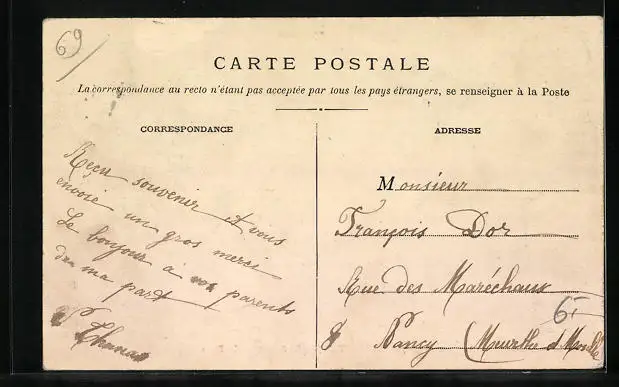 69
CARTE POSTALE
La correspondance au recto n'étant pas acceptée par tous les pays étrangers, se renseigner à la Poste
CORRESPONDANCE
Reçu souvenir et vous
envoie un gros merci
Le bonjour à vos parents
de ma part
ADRESSE
Monsieur
François Dor
Rue des Maréchaux
6-
Nancy (Meurthe et Moselle